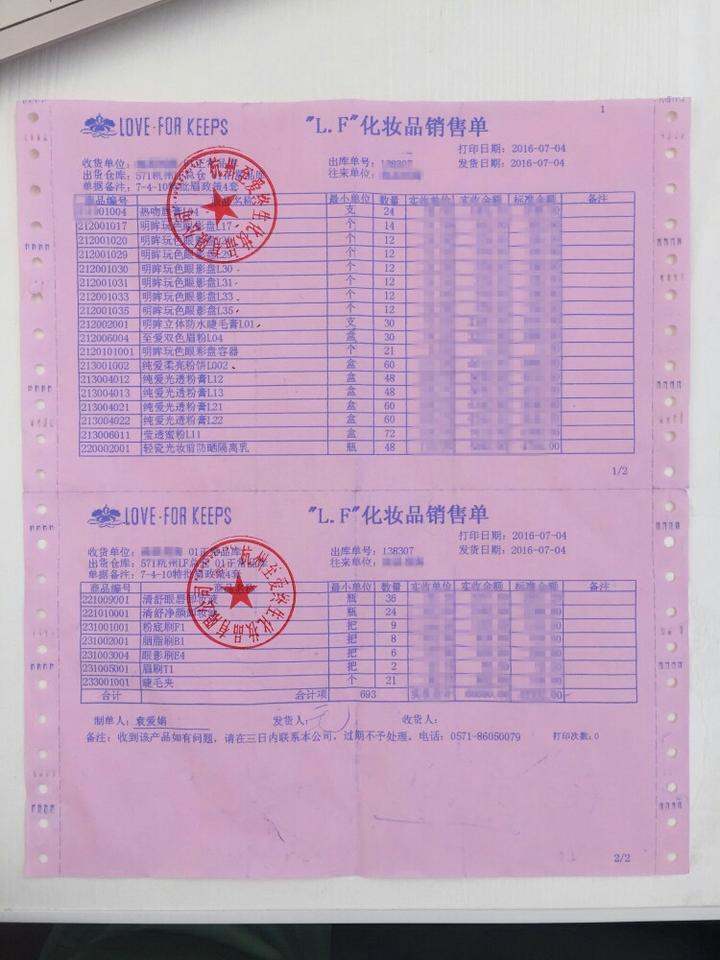 1
LOVE·FOR KEEPS "L.F"化妆品销售单
打印日期：2016-07-04
收货单位： 出库单号：138307 发货日期：2016-07-04
出货仓库：571杭州 往来单位：
单据备注：7-4-10 眉政策4套
商品编号 最小单位 数量 实收单价 实收金额 标准金额 备注
001004 热吻 支 24
212001017 明眸玩色眼影盘L17 个 14
212001020 明眸玩色眼 个 12
212001029 明眸玩色眼影盘 个 12
212001030 明眸玩色眼影盘L30 个 12
212001031 明眸玩色眼影盘L31 个 12
212001033 明眸玩色眼影盘L33 个 12
212001035 明眸玩色眼影盘L35 个 12
212002001 明眸立体防水睫毛膏L01 支 30
212006004 至爱双色眉粉L04 盒 30
2120101001 明眸玩色眼影盘容器 个 21
213001002 纯爱柔亮粉饼L002 盒 60
213004012 纯爱光透粉膏L12 盒 48
213004013 纯爱光透粉膏L13 盒 48
213004021 纯爱光透粉膏L21 盒 60
213004022 纯爱光透粉膏L22 盒 60
213006011 莹透蜜粉L11 盒 72
220002001 轻瓷光妆前防晒隔离乳 瓶 48
1/2
LOVE·FOR KEEPS "L.F"化妆品销售单
打印日期：2016-07-04
收货单位： 01正 品库 出库单号：138307 发货日期：2016-07-04
出货仓库：571杭州LF总仓 01正常品库 往来单位：
单据备注：7-4-10特批眉政策4套
商品编号 最小单位 数量 实收单价 实收金额 标准金额 备注
221009001 清舒眼唇 瓶 36
221010001 清舒净颜卸妆 瓶 24
231001001 粉底刷F1 把 9
231002001 胭脂刷B1 把 8
231003004 眼影刷E4 把 6
231005001 眉刷T1 把 2
233001001 睫毛夹 个 21
合计 合计项 693
制单人：袁爱娟 发货人： 收货人：
备注：收到该产品如有问题，请在三日内联系本公司，过期不予处理。电话：0571-86050079 打印次数：0
2/2
杭州至爱终生化妆品有限公司
杭州至爱终生化妆品有限公司